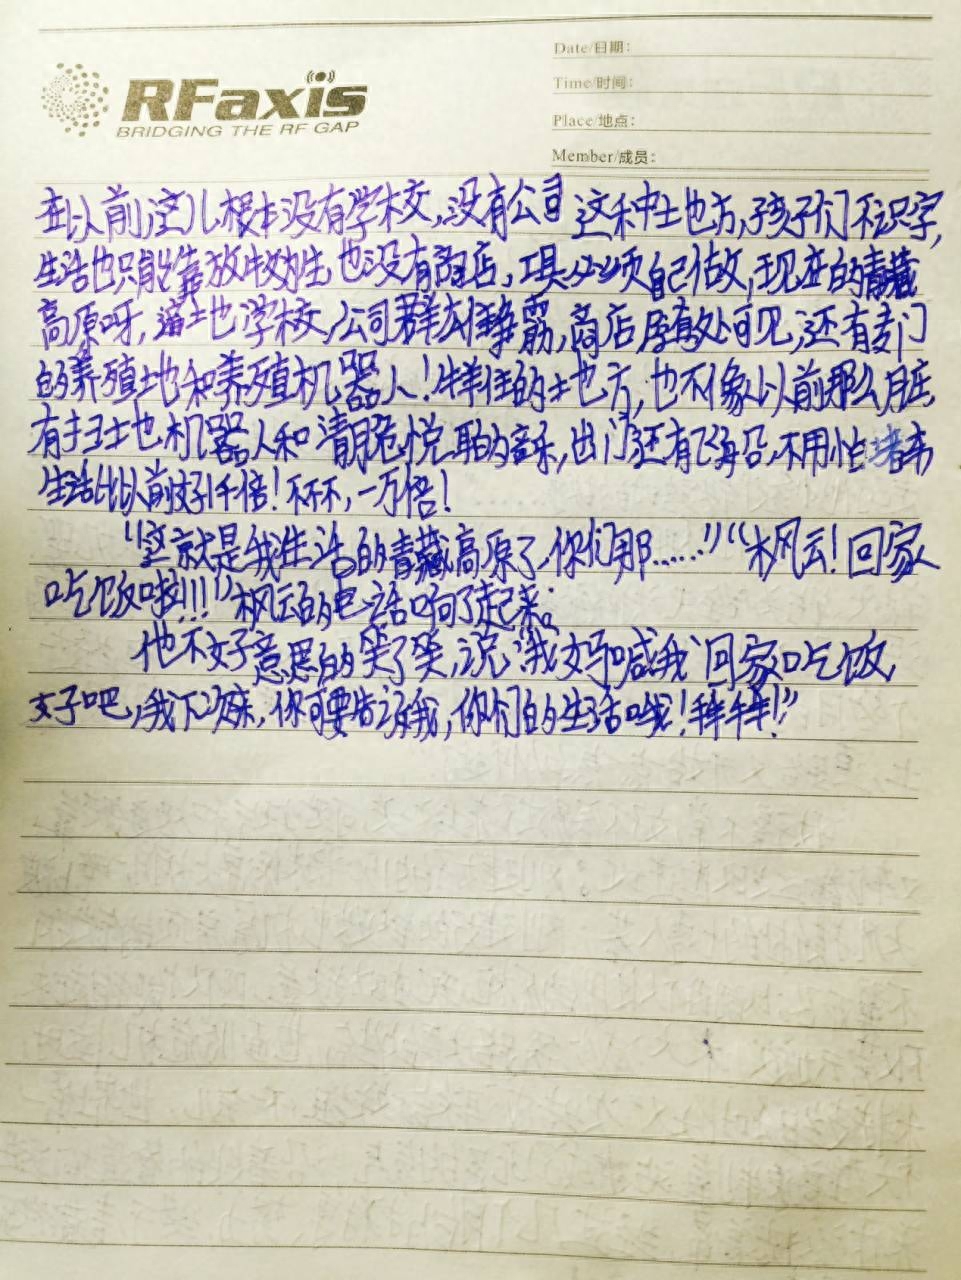 RFaxis
BRIDGING THE RF GAP
Date/日期:
Time/时间:
Place/地点:
Member/成员:
在以前,这儿根本没有学校,没有公司这种地方,孩子们不识字,
生活也只能靠放牧为生,也没有商店,工具必须自己做,现在的青藏
高原呀,遍地学校,公司群,商店随处可见,还有专门
的养殖地和养殖机器人!牛羊住的地方,也不像以前那么脏,
有扫地机器人和清脆悦耳的音乐,出门还有飞,不用怕堵车
生活比以前好1千倍!不不不,一万倍!
“这就是我生活的青藏高原了,你们那……”“枫云!回家
吃饭啦!!!”枫云的电话响了起来。
他不好意思的笑了笑,说“我妈喊我回家吃饭,
好吧,我下次来,你可要告诉我,你们的生活哦!拜拜!”